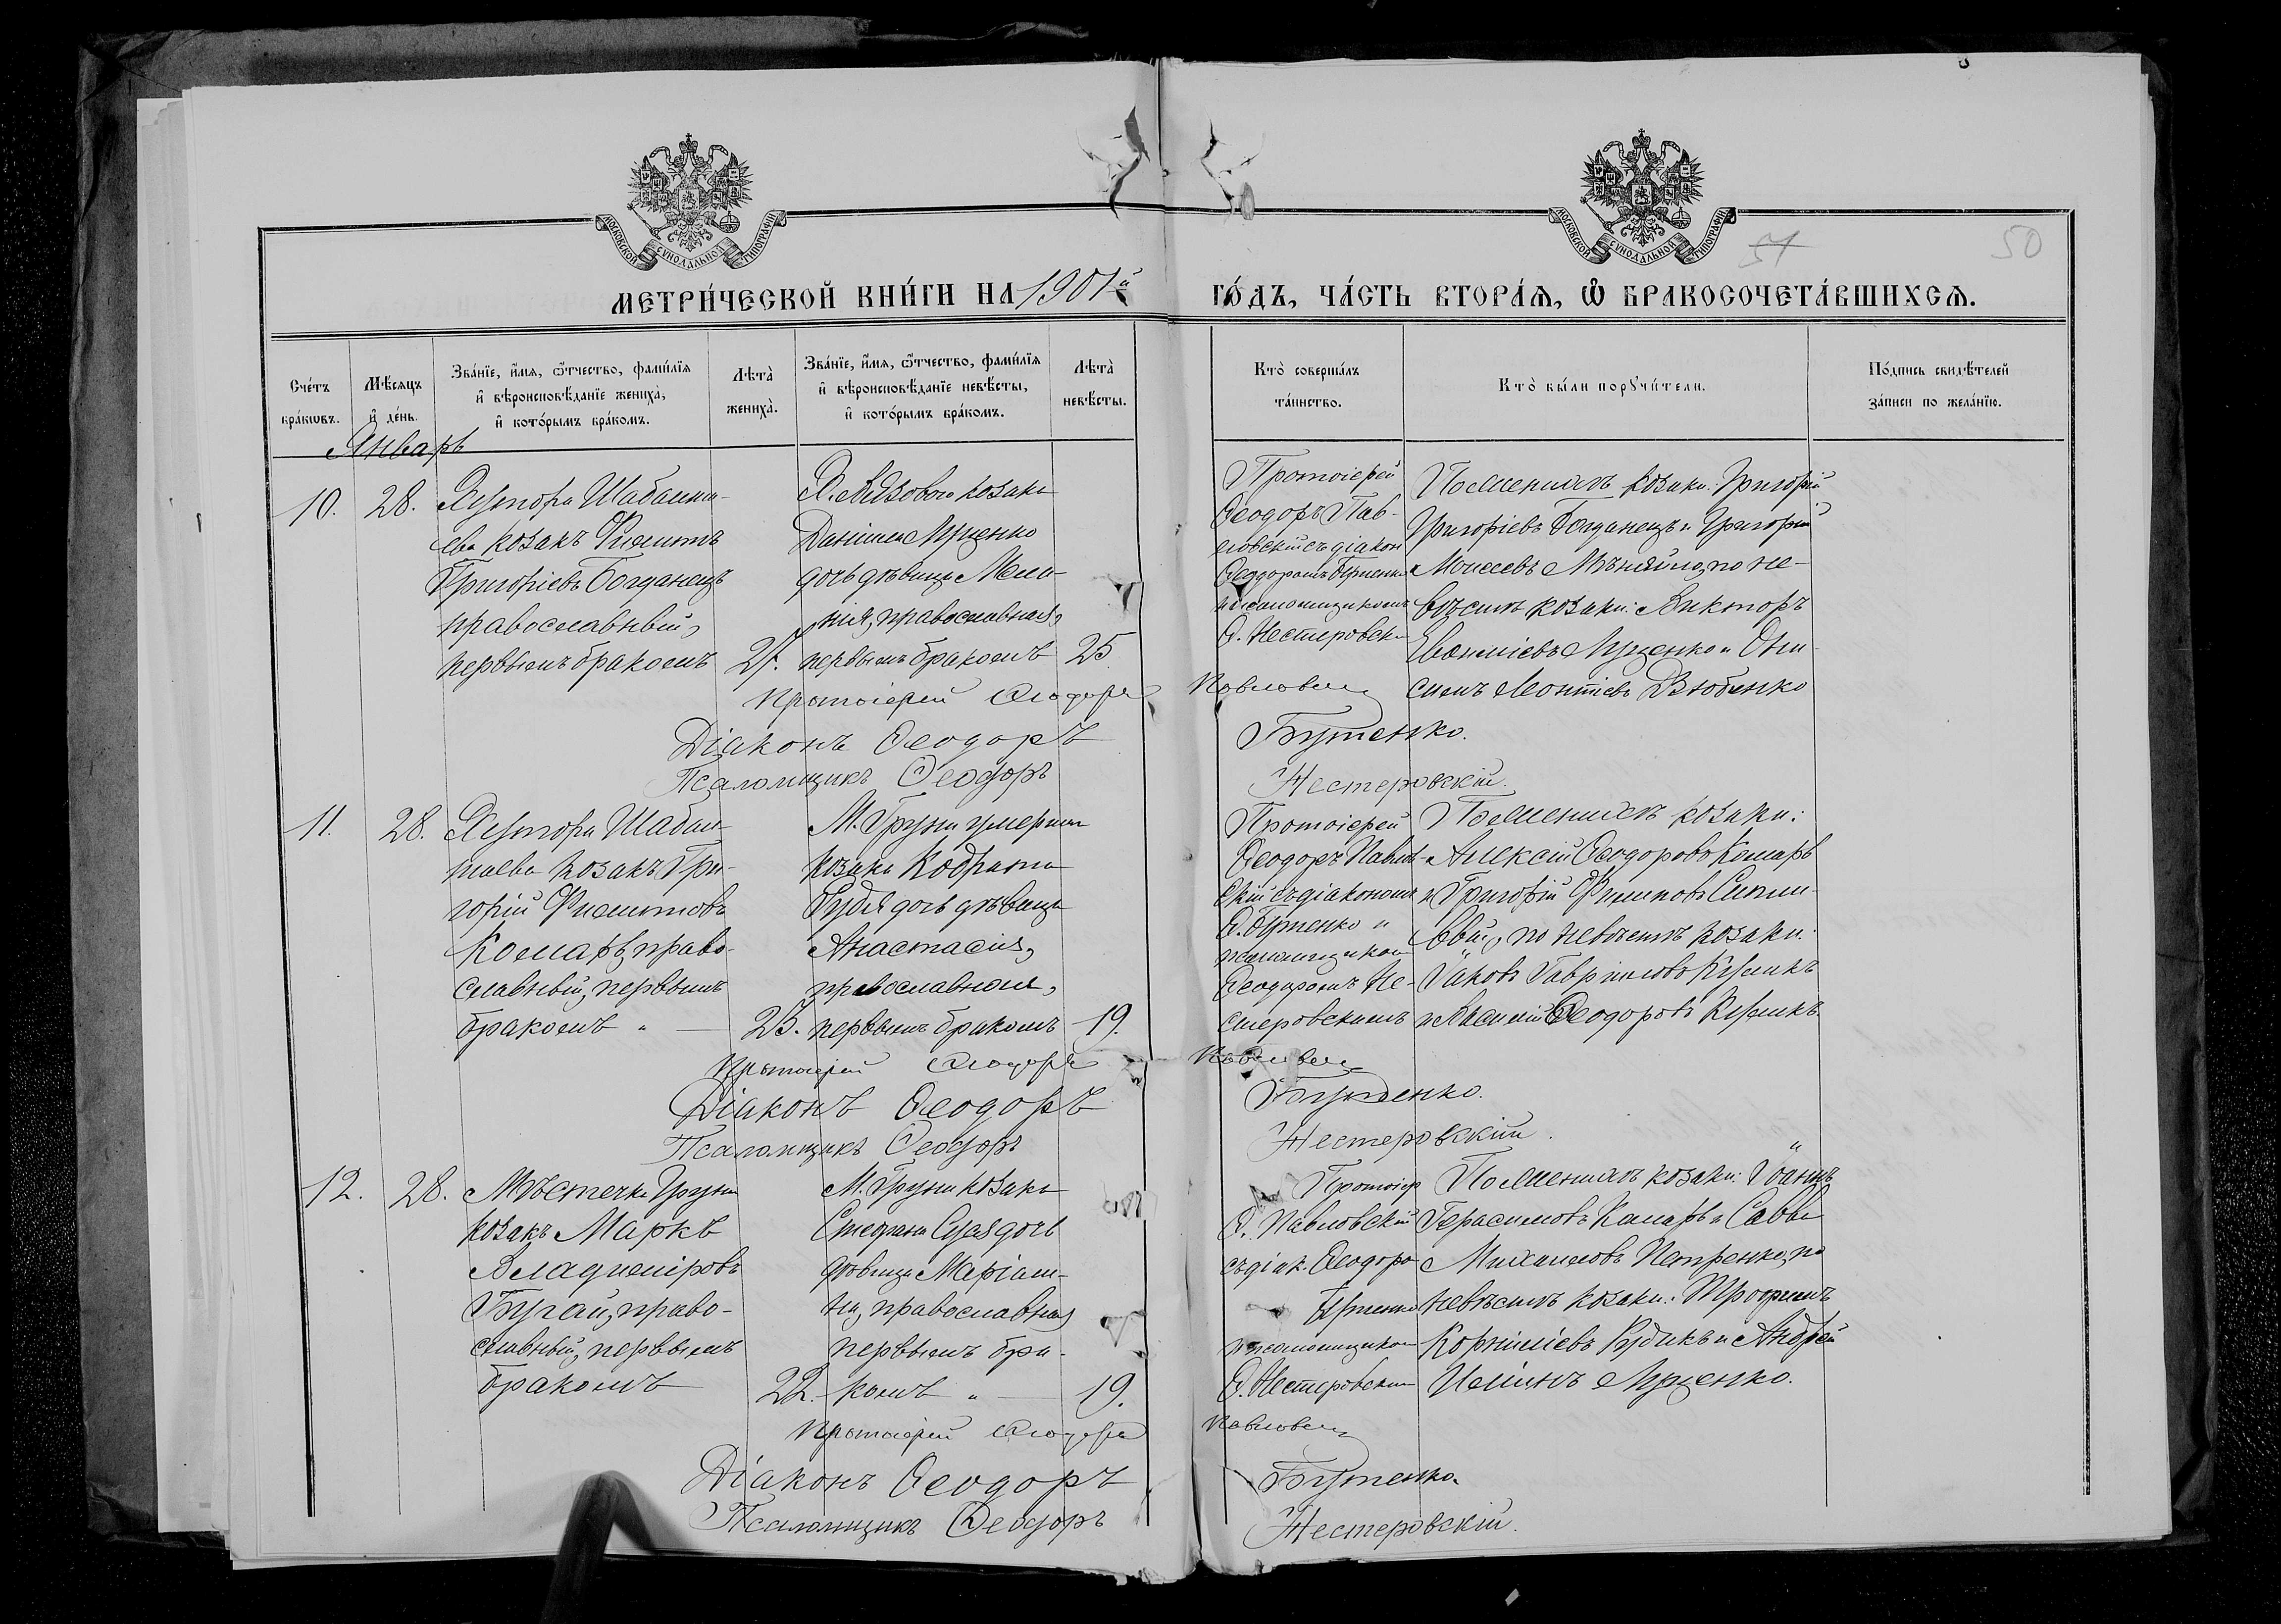 МОСКОВСКОЙ СУНОДАЛЬНОЙ ТИПОГРАФІИ
МОСКОВСКОЙ СУНОДАЛЬНОЙ ТИПОГРАФІИ
51
50
МЕТРИ́ЧЕСКОЙ КНИ́ГИ НА 1901й
ГО́ДЪ, ЧА́СТЬ ВТОРА́Я, Ѿ БРАКОСОЧЕТА́ВШИХСЯ.
Сче́тъ бра́кѡвъ.
Мѣ́сяцъ и҆ де́нь.
Зва́нїе, и҆́мя, ѻ҆́тчество, фами́лїя и҆ вѣроисповѣ́данїе жениха̀, и҆ кото́рымъ бра́комъ.
Лѣта̀ жениха̀.
Зва́нїе, и҆́мя, ѻ҆́тчество, фами́лїя и҆ вѣроисповѣ́данїе невѣ́сты, и҆ кото́рымъ бра́комъ.
Лѣта̀ невѣ́сты.
Кто̀ соверша́лъ та́инство.
Кто̀ бы́ли порꙋчи́тели.
По́дпись свидѣ́телей за́писи по жела́нїю.
Январь
10.
28.
Хутора Шабалта-
ева козакъ Филиппъ
Григоріевъ Богданецъ
православный,
первымъ бракомъ
27.
Х. Вязоваго козака
Даніила Луценко
дочь дѣвица Мела-
нія, православная,
первымъ бракомъ
25
Протоіерей
Ѳеодоръ Пав-
ловскій съ діакон
Ѳеодоромъ Бутенко
и псаломщикомъ
Ѳ. Нестеровски
По женихѣ козаки: Григорій
Григоріевъ Богданецъ и Григорій
Моисеевъ Мѣняйло, по не-
вѣстѣ козаки: Викторъ
Луценко и Они-
симъ Леонтіевъ Дзюбенко
Протоіерей Ѳеодоръ Павловскій
Діаконъ Ѳеодоръ Бутенко.
Псаломщикъ Ѳеодоръ Нестеровскій.
11.
28.
Хутора Шабал-
таева козакъ Гри-
горій Филипповъ
Комаръ, право-
славный, первымъ
бракомъ "
23.
М. Груни умерша
козака Кодрата
дочь дѣвица
Анастасія,
православная,
первымъ бракомъ
19.
Протоіерей
Ѳеодоръ Павлов-
скій съ діакономъ
Ѳ. Бутенко и
псаломщиком
Ѳеодоромъ Не-
стеровскимъ
По женихѣ козаки:
Алексій Ѳеодоровъ Комаръ
и Григорій Филиповъ
по невѣстѣ козаки:
Іаковъ Гавриловъ Куликъ
и Ѳеодоровъ Куликъ
Протоіерей Ѳеодоръ Павловскій
Діаконъ Ѳеодоръ Бутенко.
Псаломщикъ Ѳеодоръ Нестеровскій.
12.
28.
Мѣстечка Груни
козакъ Маркъ
Владиміровъ
Бугай, право-
славный, первымъ
бракомъ
22.
М. Груни козака
Стефана дочь
дѣвица Маріам-
на, православная
первымъ бра-
комъ "
19.
Протоіер
Ѳ. Павловскій
съ діак. Ѳеодоро
Бутенко
и псаломщиком
Ѳ. Нестеровским
По женихѣ козаки: Іоаннъ
Герасимовъ Комаръ и Савва
Михаиловъ Петренко, по
невѣстѣ козаки: Трофимъ
Корниліевъ Рудикъ и Андрей
Луценко.
Протоіерей Ѳеодоръ Павловскій
Діаконъ Ѳеодоръ Бутенко.
Псаломщикъ Ѳеодоръ Нестеровскій.